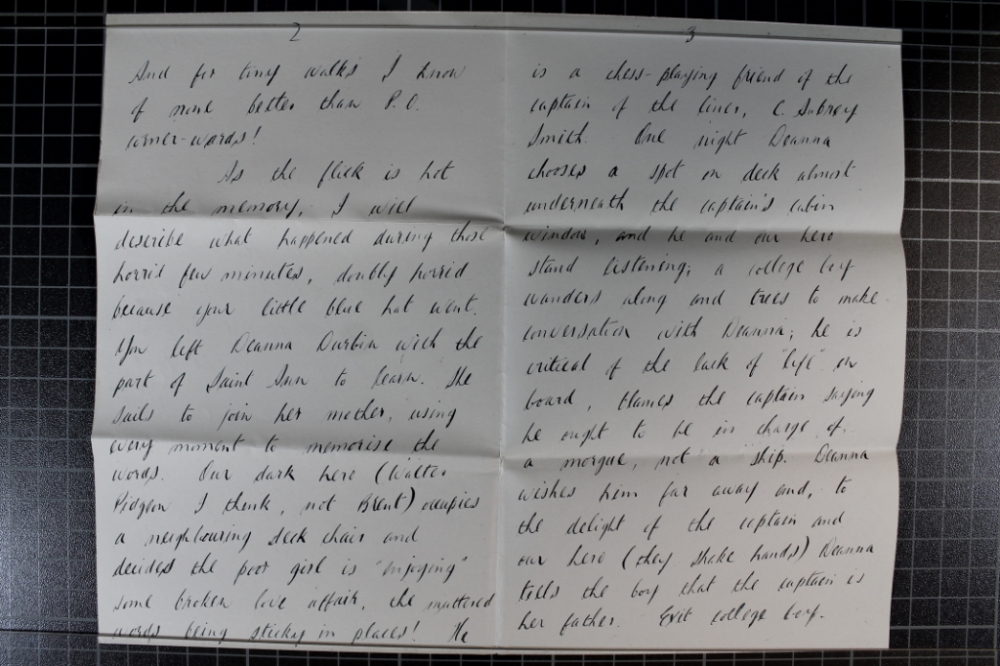 2
And for tiny walks I know
of none better than P.O.
corner-wards!
As the flick is hot
in the memory, I will
describe what happened during those
horrid few minutes, doubly horrid
because your little blue hat went.
You left Deanna Durbin with the
part of Saint Sun to learn. She
sails to join her mother, using
every moment to memorise the
words. Our dark hero (Walter
Pidgeon I think, not Brent) occupies
a neighbouring deck chair and
decides the poor girl is "enjoying"
some broken love affair, the muttered
words being sticky in places! He
3
is a chess-playing friend of the
captain of the liner, C. Aubrey
Smith. One night Deanna
chooses a spot on deck almost
underneath the captain's cabin
window, and he and our hero
stand listening; a college boy
wanders along and trees to make
conversation with Deanna; he is
critical of the lack of "life" on
board, blames the captain saying
he ought to be in charge of
a morgue, not a ship. Deanna
wishes him far away and, to
the delight of the captain and
our hero (they shake hands) Deanna
tells the boy that the captain is
her father. Exit college boy.